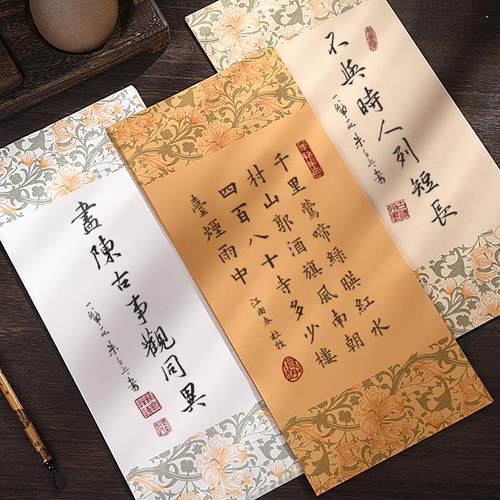 不與時人列短長
千里鶯啼綠暎紅水
村山郭酒旗風南朝
四百八十寺多少樓
臺煙雨中
江南春 杜牧
盡陳古事觀同異